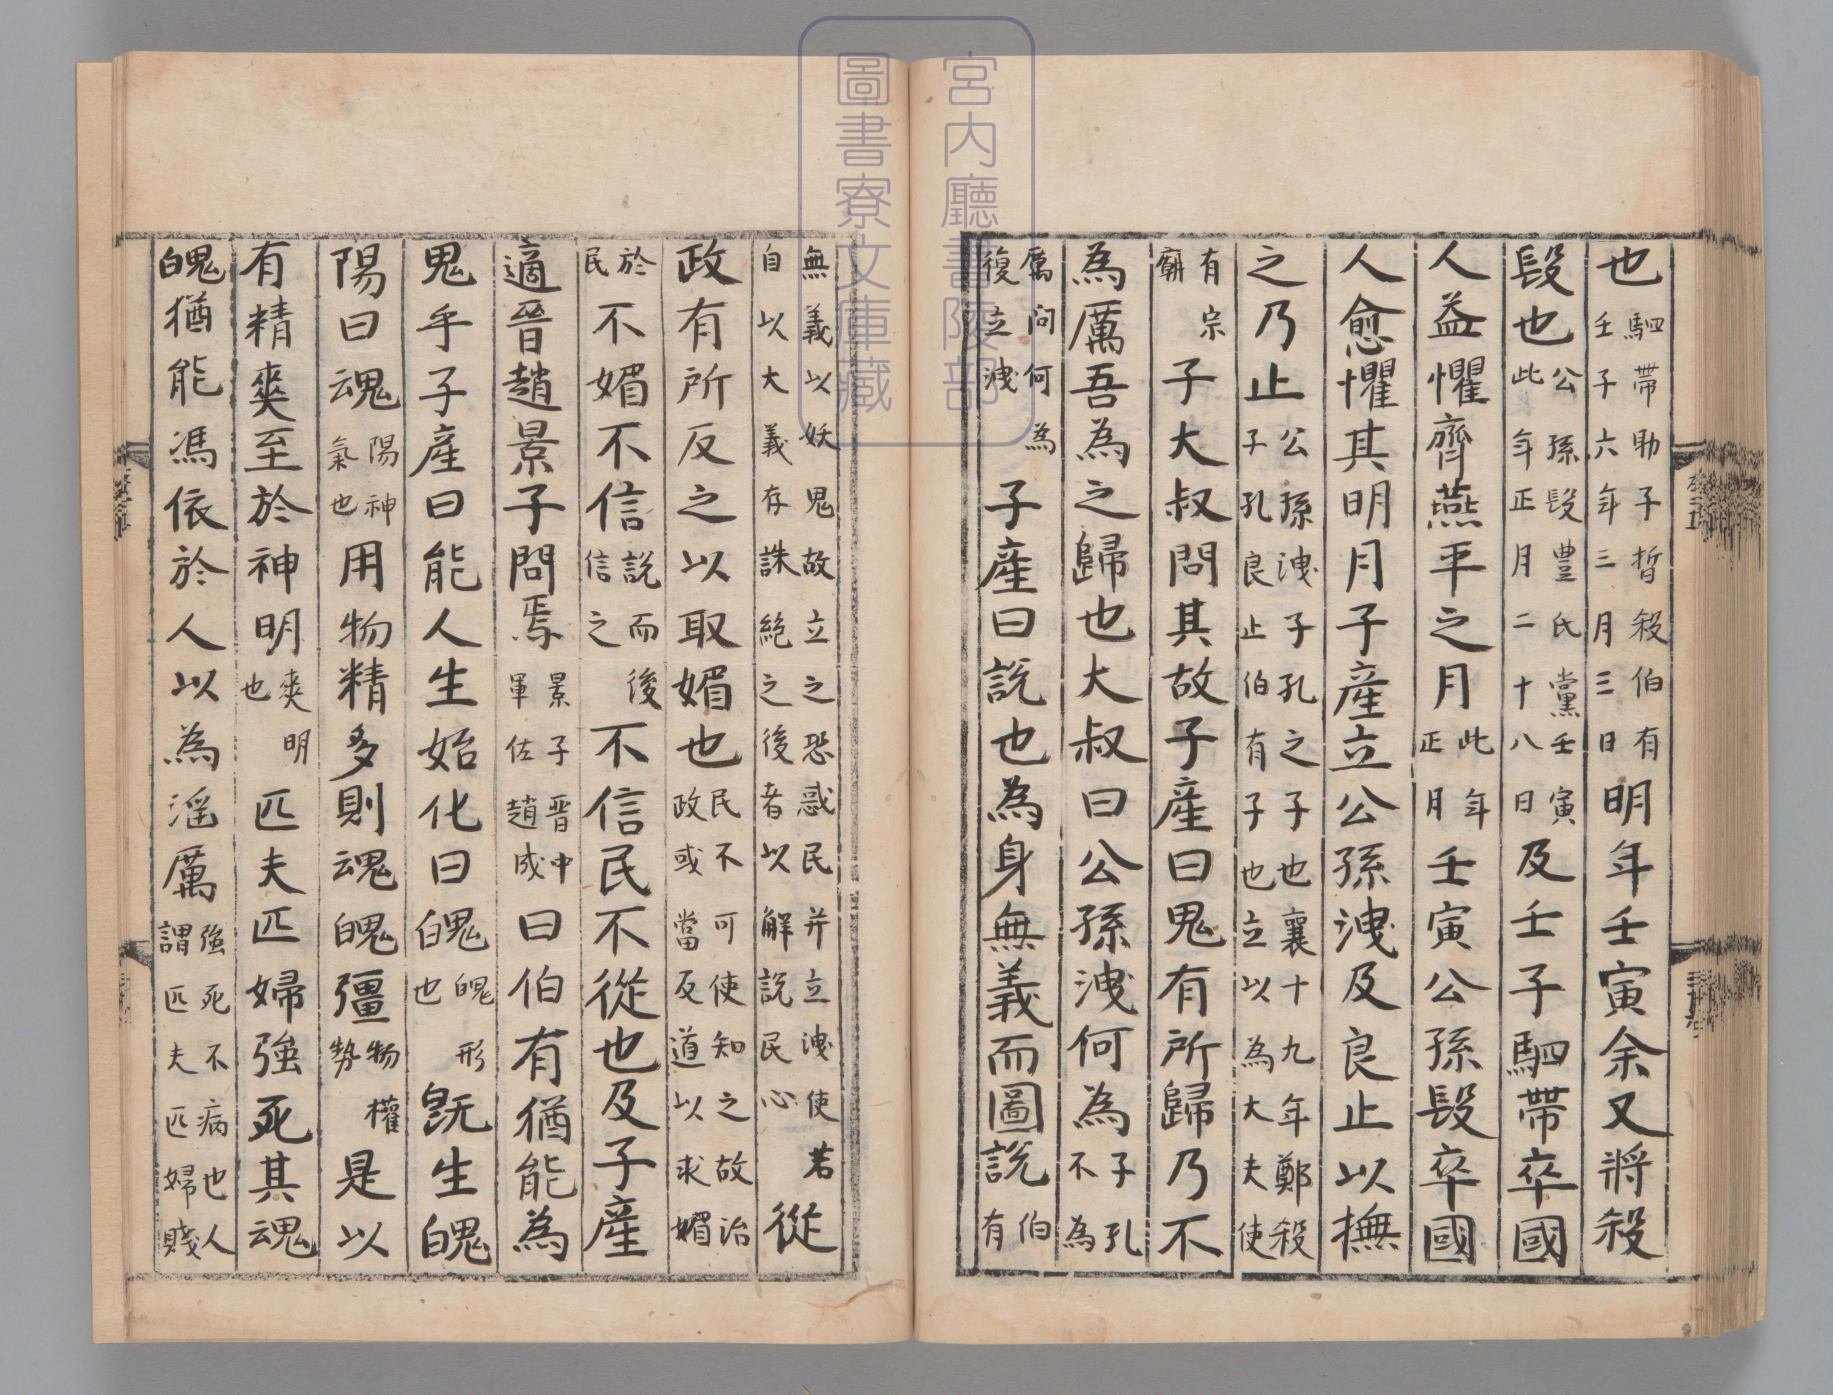 也駟帶助子皙殺伯有壬子六年三月三日明年壬寅余又將殺
段也公孫段豐氏黨壬寅此年正月二十八日及壬子駟帶卒國
人益懼齊燕平之月此年正月壬寅公孫段卒國
人愈懼其明月子產立公孫洩及良止以撫
之乃止公孫洩子孔之子也襄十九年鄭殺子孔良止伯有子也立以為大夫使
有宗廟子大叔問其故子產曰鬼有所歸乃不
為厲吾為之歸也大叔曰公孫洩何為子孔不為
厲問何為復立洩子產曰說也為身無義而圖說伯有
無義以妖鬼故立之恐惑民并立洩使若自以大義存誅絕之後者以解說民心從
政有所反之以取媚也民不可使知之故治政或當反道以求媚
於民不媚不信說而後信之不信民不從也及子產
適晉趙景子問焉景子晉中軍佐趙成曰伯有猶能為
鬼乎子產曰能人生始化曰魄魄形也既生魄
陽曰魂陽神氣也用物精多則魂魄彊物權勢是以
有精爽至於神明爽明也匹夫匹婦強死其魂
魄猶能馮依於人以為淫厲強死不病也人謂匹夫匹婦賤
宮內廳書陵部
圖書寮文庫藏